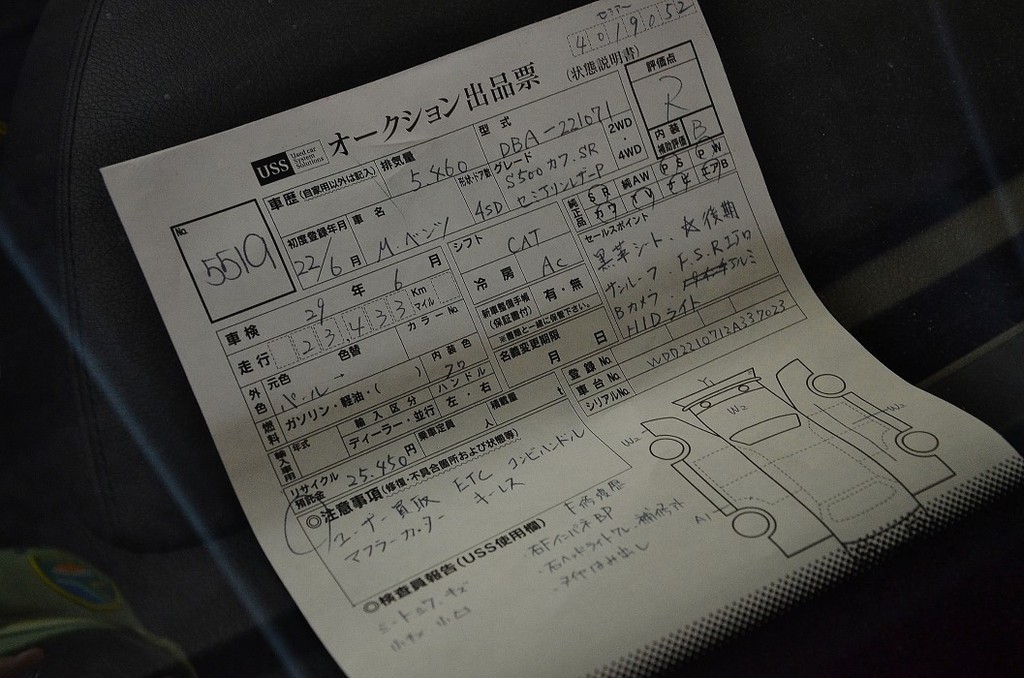 4019052
USS Used car System Solutions オークション出品票 (状態説明書)
No. 5519
車歴 (自家用以外は記入)
排気量 5.460
型式 DBA-221071
2WD・4WD
評価点 R
内装補助評価 B
初度登録年月 22/6月
車名 M.ベンツ
形状・ドア数 4SD
グレード S500 カブ.SR
車検 29年 6月
シフト CAT
純正品
純AW
PS
PW
走行 23433 Km マイル
冷房 AC
セールスポイント
黒革シート ☆後期
外色 元色 パール→
色替
カラーNo.
新車整備手帳 (保証書付) 有・無
※書類と一緒に保管下さい。
サンルーフ F.S.R
Bカメラ
HIDライト
燃料 ガソリン・軽油・( )
内装色 クロ
名義変更期限 月 日
輸入車用 年式
輸入区分 ディーラー・並行
ハンドル 左・右
登録No.
車台No. WDD2210712A337023
シリアルNo.
リサイクル預託金 25,450円
乗車定員 人
積載量 t
◎注意事項 (修復・不具合箇所および状態等)
ユーザー買取 ETC コンビハンドル
マフラーカッター キーレス
◎検査員報告 (USS使用欄)
F修復歴
右FインパネBP
・右ヘッドライト
タイヤはみ出し
Y1
W2
W2
W2
A1